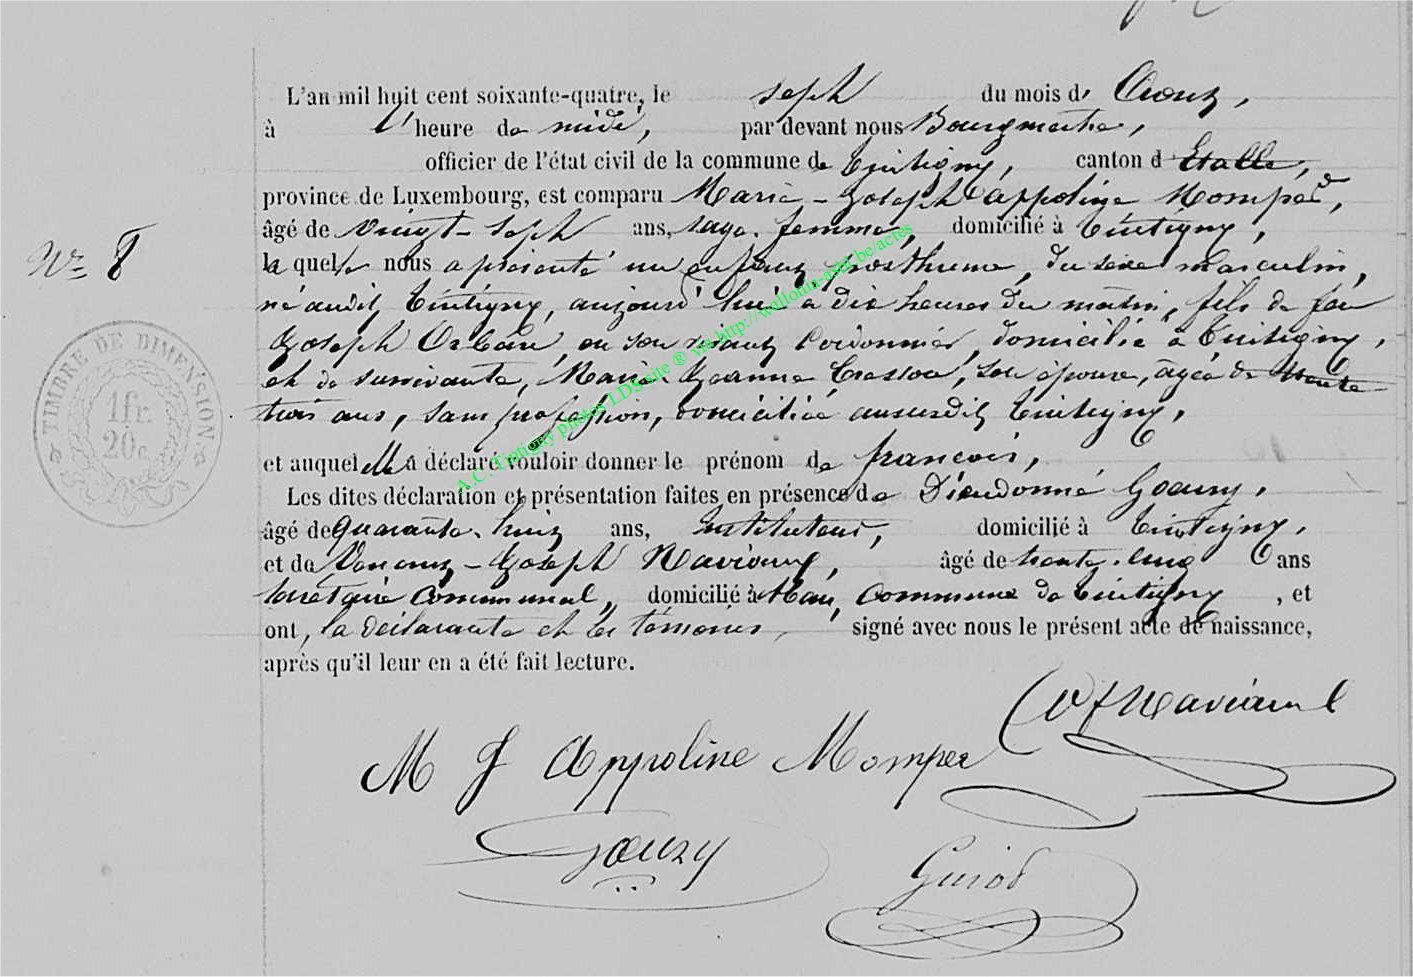 L'an mil huit cent soixante-quatre, le sept du mois d'Août,
à l'heure de midi, par devant nous Bourgmestre,
officier de l'état civil de la commune de Tintigny, canton d'Etalle,
province de Luxembourg, est comparu Marie-Joseph Appoline Momper,
âgé de vingt-sept ans, sage-femme, domicilié à Tintigny,
laquelle nous a présenté un enfant posthume, du sexe masculin,
né audit Tintigny, aujourd'hui à dix heures du matin, fils de feu
Joseph Orban, en son vivant Cordonnier, domicilié à Tintigny,
et de survivante, Marie-Jeanne, son épouse, âgée de trente
trois ans, sans profession, domiciliée aususdit Tintigny,
et auquel elle a déclaré vouloir donner le prénom de françois,
Les dites déclaration et présentation faites en présence de Dieudonné Goeury,
âgé de quarante-huit ans, Instituteur, domicilié à Tintigny,
et de Joseph Naviaux, âgé de trente-cinq ans
Secrétaire Communal, domicilié à Han, Commune de Tintigny, et
ont, la déclarante et les témoins, signé avec nous le présent acte de naissance,
après qu'il leur en a été fait lecture.
N° 8
TIMBRE DE DIMENSION
1 fr.
20 c.
M J Appoline Momper
Goeury
A.C. Tintigny photos LDS site ® via http://wallonia-asbl.be/actes